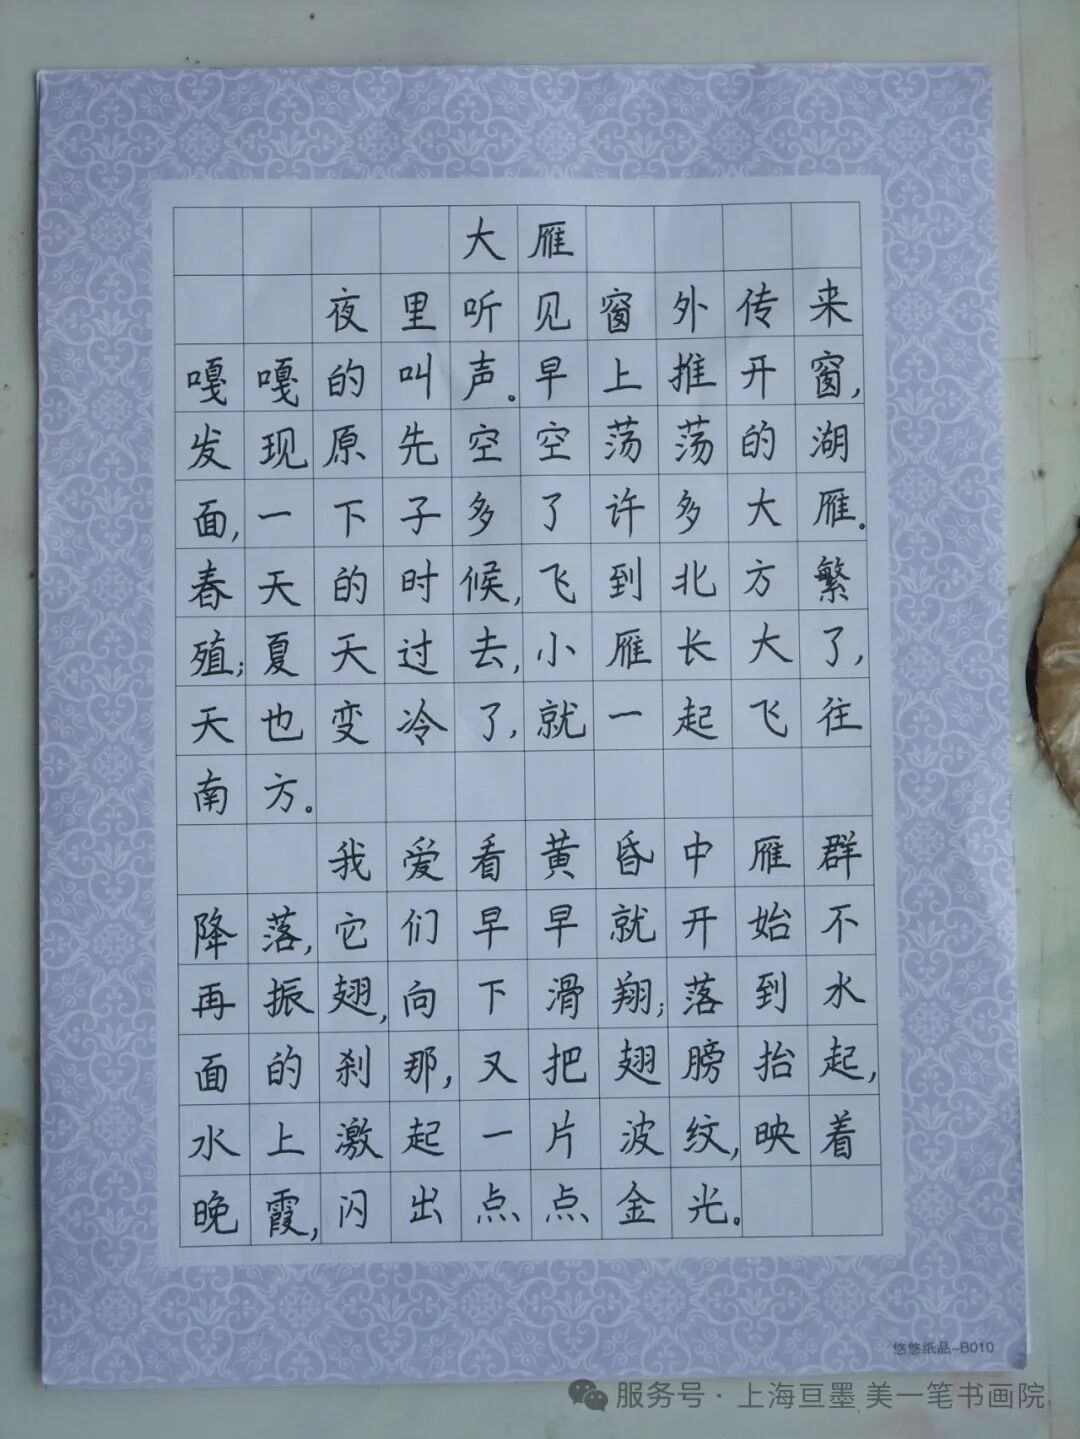 大雁
夜里听见窗外传来
嘎嘎的叫声。早上推开窗,
发现原先空空荡荡的湖
面,一下子多了许多大雁。
春天的时候,飞到北方繁
殖;夏天过去,小雁长大了,
天也变冷了,就一起飞往
南方。
我爱看黄昏中雁群
降落,它们早早就开始不
再振翅,向下滑翔;落到水
面的刹那,又把翅膀抬起,
水上激起一片波纹,映着
晚霞,闪出点点金光。
悠悠纸品-B010
服务号·上海亘墨美一笔书画院